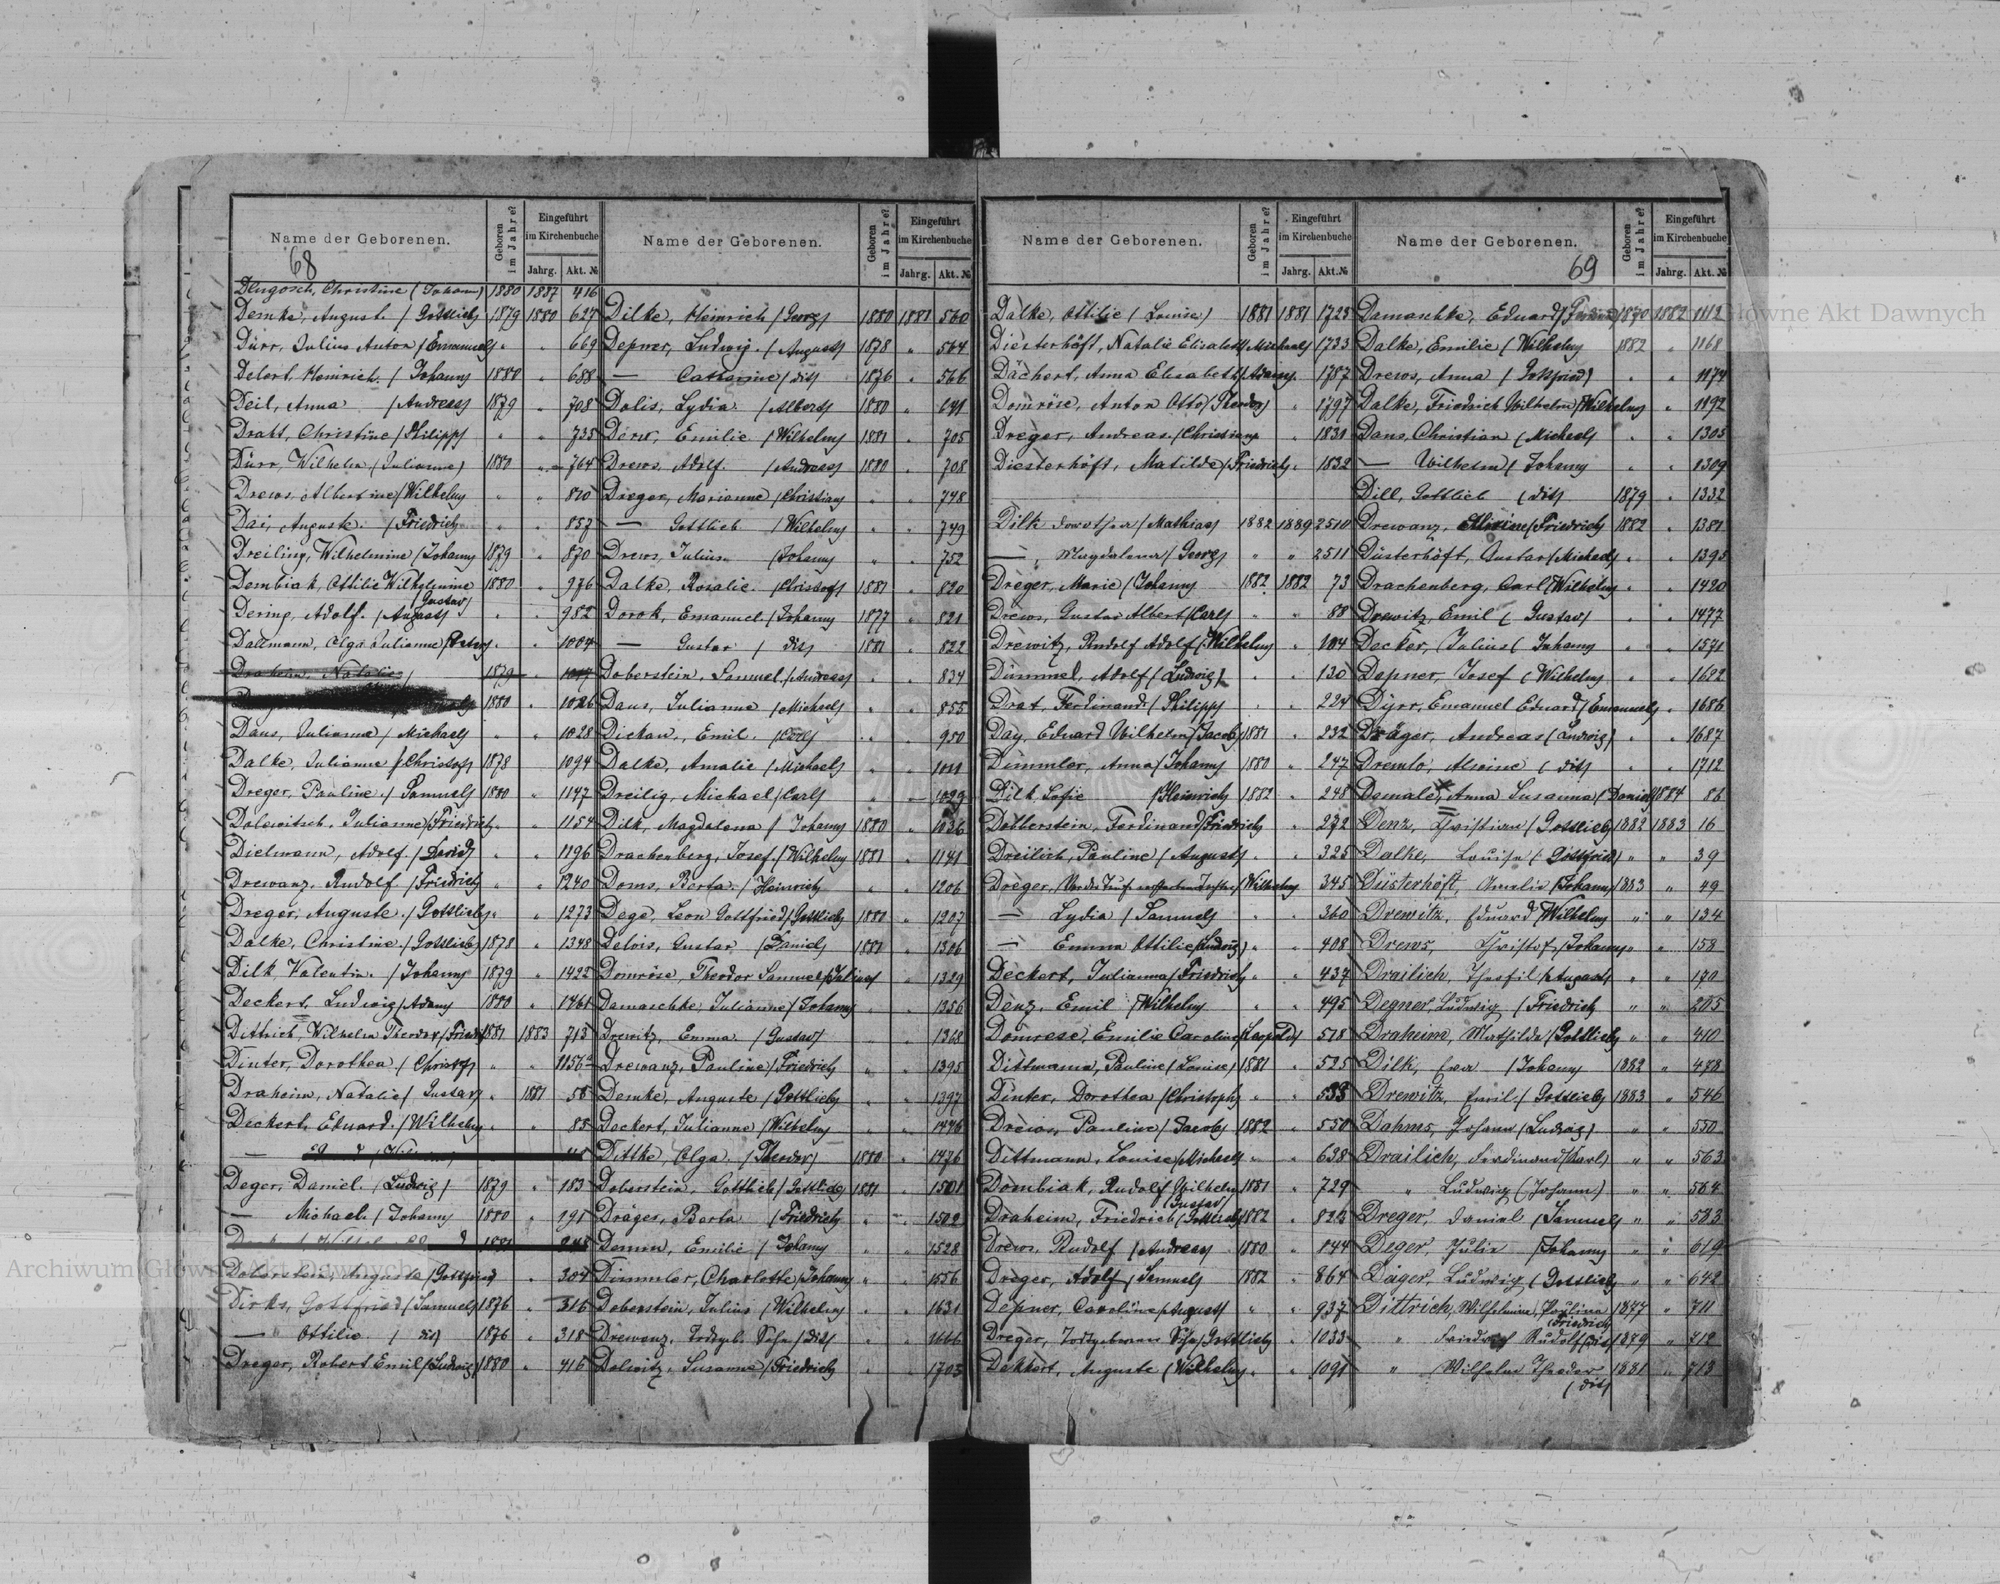 68
Name der Geborenen. Geboren im Jahre? Eingeführt im Kirchenbuche Jahrg. Akt. №
Dlugosch, Christine (Johann) 1880 1887 416
Demke, August (Gottlieb) 1879 1880 627
Dürr, Julius Anton (Emanuel) " " 669
Detert, Heinrich (Johann) 1880 " 688
Deil, Anna (Andreas) 1879 " 708
Dratt, Christine (Philipp) " " 735
Dürr, Wilhelm (Julianne) 1880 " 764
Drews, Albertine (Wilhelm) " " 810
Dai, Auguste (Friedrich) " " 857
Dreiling, Wilhelmine (Johann) 1879 " 870
Dembiak, Ottilie Wilhelmine (Gustav) 1880 " 976
Dering, Adolf (August) " " 982
Dallmann, Olga Julianne (Peter) " " 1004
Draheim, Natalie 1879 1017
1880 " 1026
Daus, Julianne (Michael) " " 1028
Dalke, Julianne (Christof) 1878 1094
Dreger, Pauline (Samuel) 1880 " 1147
Dolewitsch, Julianne (Friedrich) " " 1154
Dielmann, Adolf (David) " " 1196
Drewanz, Rudolf (Friedrich) " " 1240
Dreger, Auguste (Gottlieb) " " 1273
Dalke, Christine (Gottlieb) 1878 " 1348
Dilk, Valentin (Johann) 1879 " 1422
Deckert, Ludwig (Adam) 1880 " 1461
Dittrich, Wilhelm Theodor (Friedr 1881 1883 713
Dinter, Dorothea (Christof) " " 1156
Draheim, Natalie (Gustav) " 1881 58
Deckert, Eduard (Wilhelm) " " 85
Deger, Daniel (Ludwig) 1879 " 183
— Michael (Johann) 1880 " 191
Doberstein, Auguste (Gottfried) " 304
Dirks, Gottfried (Samuel) 1876 " 316
— " Ottilie (dit) 1876 " 318
Dreger, Robert Emil (Ludwig) 1880 " 416
Name der Geborenen. Geboren im Jahre? Eingeführt im Kirchenbuche Jahrg. Akt. №
Dilke, Heinrich (Georg) 1880 1881 560
Depner, Ludwig (August) 1878 " 564
— Catharine (dit) 1876 " 566
Dolis, Lydia (Albert) 1880 " 641
Derw, Emilie (Wilhelm) 1881 " 705
Drews, Adolf (Andreas) 1880 " 708
Dreger, Marianne (Christian) " " 748
— Gottlieb (Wilhelm) " " 749
Drews, Julius (Johann) " " 752
Dalke, Rosalie (Christof) 1881 " 820
Dorok, Emanuel (Johann) 1877 " 821
— Gustav (dit) 1881 " 822
Doberstein, Samuel (Andreas) " " 834
Daus, Julianne (Michael) " " 855
Dickau, Emil (Carl) " " 950
Dalke, Amalie (Michael) " " 1011
Dreilig, Michael (Carl) " " 1029
Dilk, Magdalena (Johann) 1880 " 1036
Drachenberg, Josef (Wilhelm) 1881 " 1141
Doms, Berta (Heinrich) " " 1206
Dege, Leon Gottfried (Gottlieb) 1880 " 1207
Delois, Gustav (Daniel) 1881 " 1306
Domröse, Theodor Samuel (Julius) " 1329
Damaschke, Julianne (Johann) " 1356
Drewitz, Emma (Gustav) " " 1368
Drewanz, Pauline (Friedrich) " " 1395
Demke, Auguste (Gottlieb) " " 1397
Deckert, Julianne (Wilhelm) " " 1446
Dittke, Olga (Theodor) 1880 " 1476
Doberstein, Gottlieb (Gottlieb) 1881 " 1501
Dräger, Berta (Friedrich) " " 1502
Demm, Emilie (Johann) " " 1528
Dimmler, Charlotte (Johann) " " 1556
Doberstein, Julius (Wilhelm) " " 1631
Drewanz, Todtgeb. Sohn (dit) " " 1666
Dolewitz, Susanne (Friedrich) " " 1703
Name der Geborenen. Geboren im Jahre? Eingeführt im Kirchenbuche Jahrg. Akt. №
Dalke, Ottilie (Louise) 1881 1881 1725
Diesterhöft, Natalie Elisabeth (Michael) 1733
Dächert, Anna Elisabeth (Adam) " 1787
Domröse, Anton Otto (Theodor) " 1797
Dreger, Andreas (Christian) " 1831
Diesterhöft, Matilde (Friedrich) " 1832
Dilk Dorothea (Mathias) 1882 1889 2510
— , Magdalena (Georg) " " 2511
Dreger, Marie (Johann) 1882 1882 73
Drews, Gustav Albert (Carl) " " 88
Drewitz, Rudolf Adolf (Wilhelm) " 104
Dümmel, Adolf (Ludwig) " " 130
Drat, Ferdinand (Philipp) " " 224
Day, Eduard Wilhelm (Jacob) 1881 " 232
Dimmler, Anna (Johann) 1880 " 247
Dilk, Sofie (Heinrich) 1882 " 248
Dobberstein, Ferdinand (Friedrich) " " 272
Dreilich, Pauline (August) " " 325
Dreger, Vor der Taufe verstorbene Tochter (Wilhelm) 345
— Lydia (Samuel) " " 360
— Emma Ottilie (Ludwig) " " 408
Deckert, Julianna (Friedrich) " " 437
Denz, Emil (Wilhelm) " " 495
Domrese, Emilie Caroline (Leopold) 518
Dittmann, Pauline (Louise) 1881 " 525
Dinter, Dorothea (Christoph) " " 533
Drews, Pauline (Jacob) 1882 " 550
Dittmann, Louise (Michael) " " 638
Dombiak, Rudolf Wilhelm (Gustav) 1881 " 729
Draheim, Friedrich (Gottlieb) 1882 " 823
Drews, Rudolf (Andreas) 1880 " 844
Dreger, Adolf (Samuel) 1882 " 864
Depner, Caroline (August) " " 937
Dreger, Todtgeborener Sohn (Gottlieb) " 1033
Dekkert, Auguste (Wilhelm) " " 1091
69
Name der Geborenen. Geboren im Jahre? Eingeführt im Kirchenbuche Jahrg. Akt. №
Damaschke, Eduard 1870 1882 1112
Dalke, Emilie (Wilhelm) 1882 " 1168
Drews, Anna (Gottfried) " " 1174
Dalke, Friedrich Wilhelm (Wilhelm) " 1192
Daus, Christian (Michael) " " 1305
— Wilhelm (Johann) " " 1309
Dill, Gottlieb (dit) 1879 " 1332
Drewanz, Alwine (Friedrich) 1882 " 1381
Düsterhöft, Gustav (Michael) " " 1395
Drachenberg, Carl (Wilhelm) " " 1420
Drewitz, Emil (Gustav) " " 1477
Decker, Julius (Johann) " " 1571
Depner, Josef (Wilhelm) " " 1622
Dyrr, Emanuel Eduard (Emanuel) " 1686
Dräger, Andreas (Ludwig) " " 1687
Dremlo, Alwine (dit) " " 1712
Demale, Anna Susanna (Daniel) 1884 86
Denz, Christian (Gottlieb) 1882 1883 16
Dalke, Louise (Gottfried) " " 39
Düsterhöft, Amalie (Johann) 1883 " 49
Drewitz, Eduard (Wilhelm) " " 134
Drews, Christof (Johann) " " 158
Drailich, Theofil (August) " " 170
Degner, Ludwig (Friedrich) " " 205
Draheim, Mathilde (Gottlieb) " " 410
Dilk, Ewa (Johann) 1882 " 488
Drewitz, Emil (Gottlieb) 1883 " 546
Dahms, Johann (Ludwig) " " 550
Drailich, Ferdinand (Karl) " " 563
" Ludwig (Johann) " " 564
Dreger, Daniel (Samuel) " " 583
Deger, Julie (Johann) " " 619
Däger, Ludwig (Gottlieb) " " 642
Dittrich, Wilhelmine Paulina (Friedrich) 1877 " 711
" Friedrich Rudolf (dit) 1879 " 712
" Wilhelm Theodor (dit) 1881 " 713
Archiwum Główne Akt Dawnych
Główne Akt Dawnych